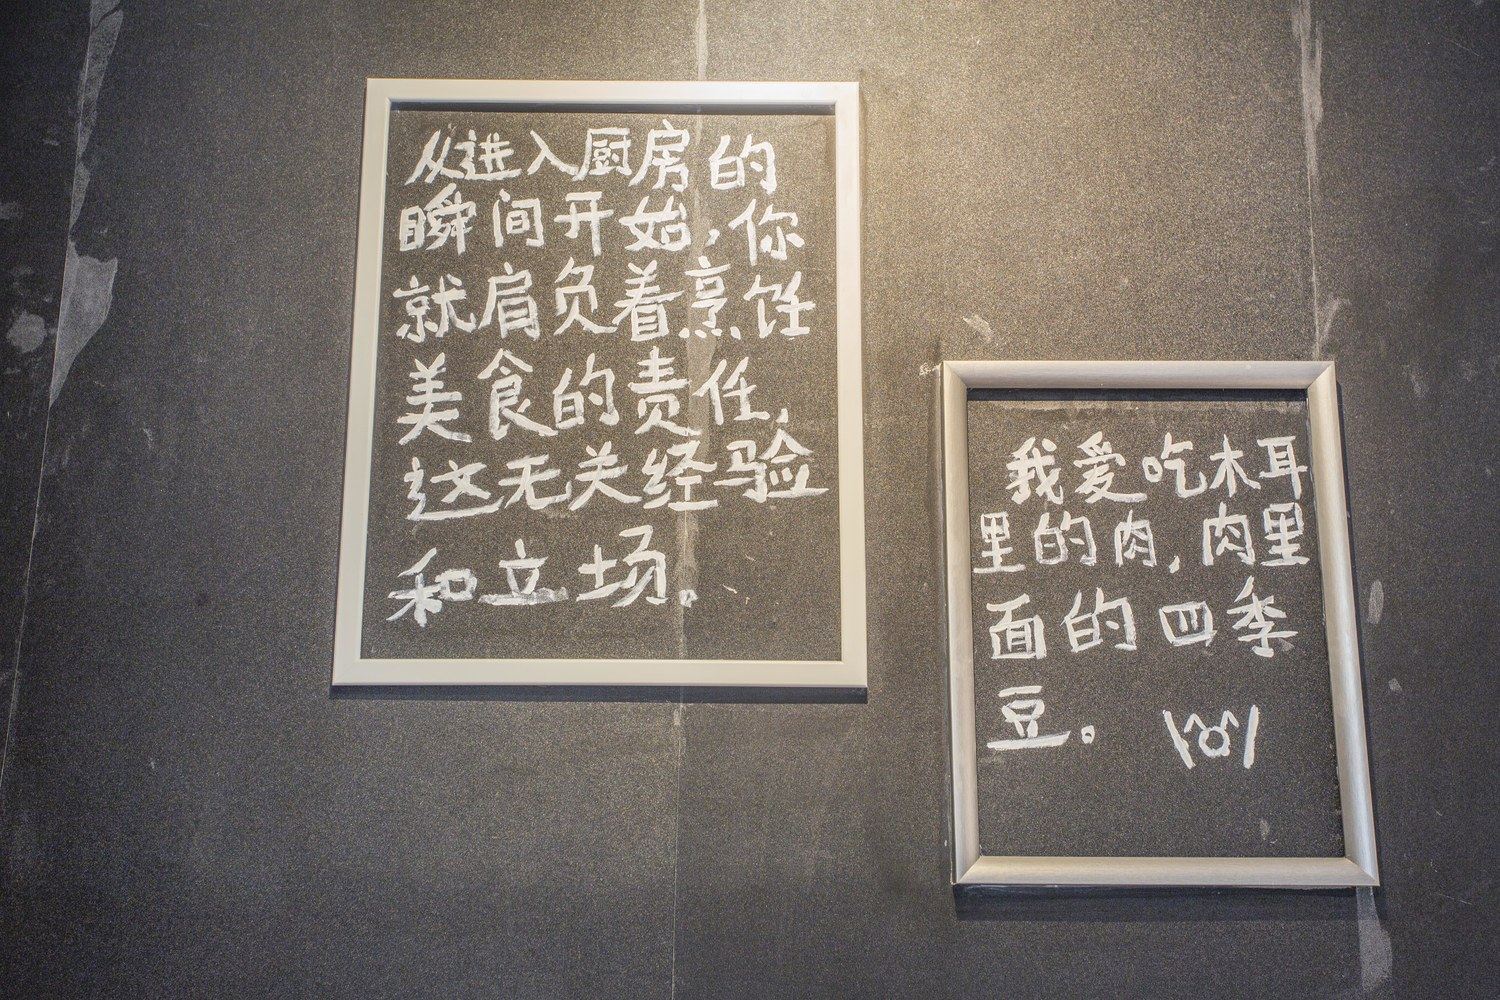 从进入厨房的
瞬间开始,你
就肩负着烹饪
美食的责任,
这无关经验
和立场。
我爱吃木耳
里的肉,肉里
面的四季
豆。 \^o^/